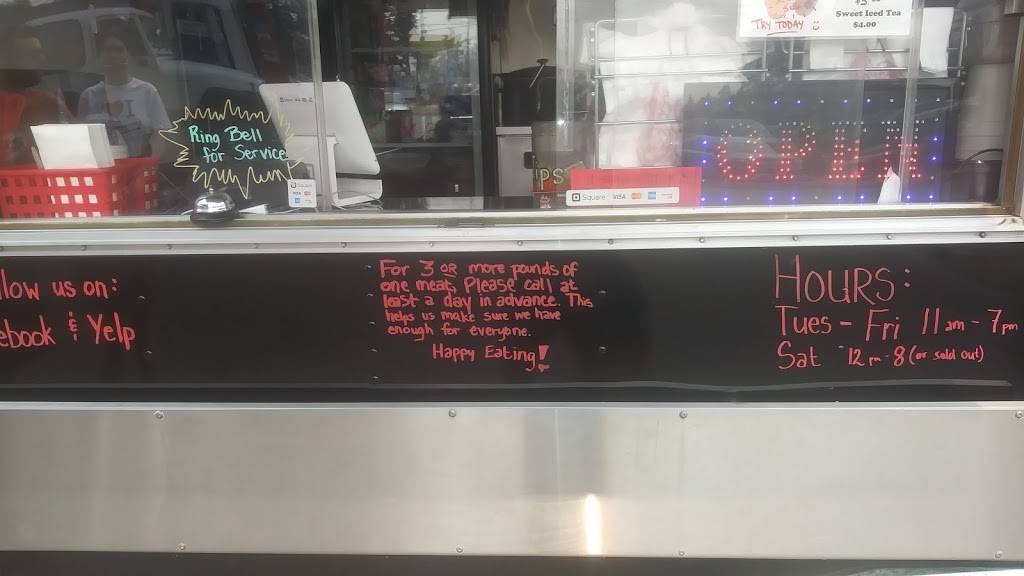 Sweet Iced Tea
TRY TODAY $4.00
Ring Bell
for Service
OPEN
Square VISA
Square
For 3 OR more pounds of
one meat, Please call at
least a day in advance. This
helps us make sure we have
enough for everyone.
Happy Eating!
llow us on:
ebook & Yelp
HOURS:
Tues - Fri 11 am - 7 pm
Sat 12 pm - 8 (or sold out)